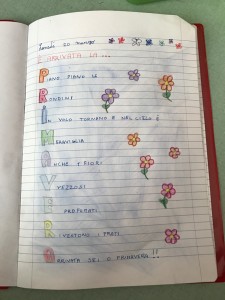 Lunedì 20 marzo
È ARRIVATA LA ...
PIANO PIANO LE
RONDINI
IN VOLO TORNANO E NEL CIELO È
MERAVIGLIA
ANCHE I FIORI
VEZZOSI
E PROFUMATI,
RIVESTONO I PRATI.
ARRIVATA SEI O PRIMAVERA!!